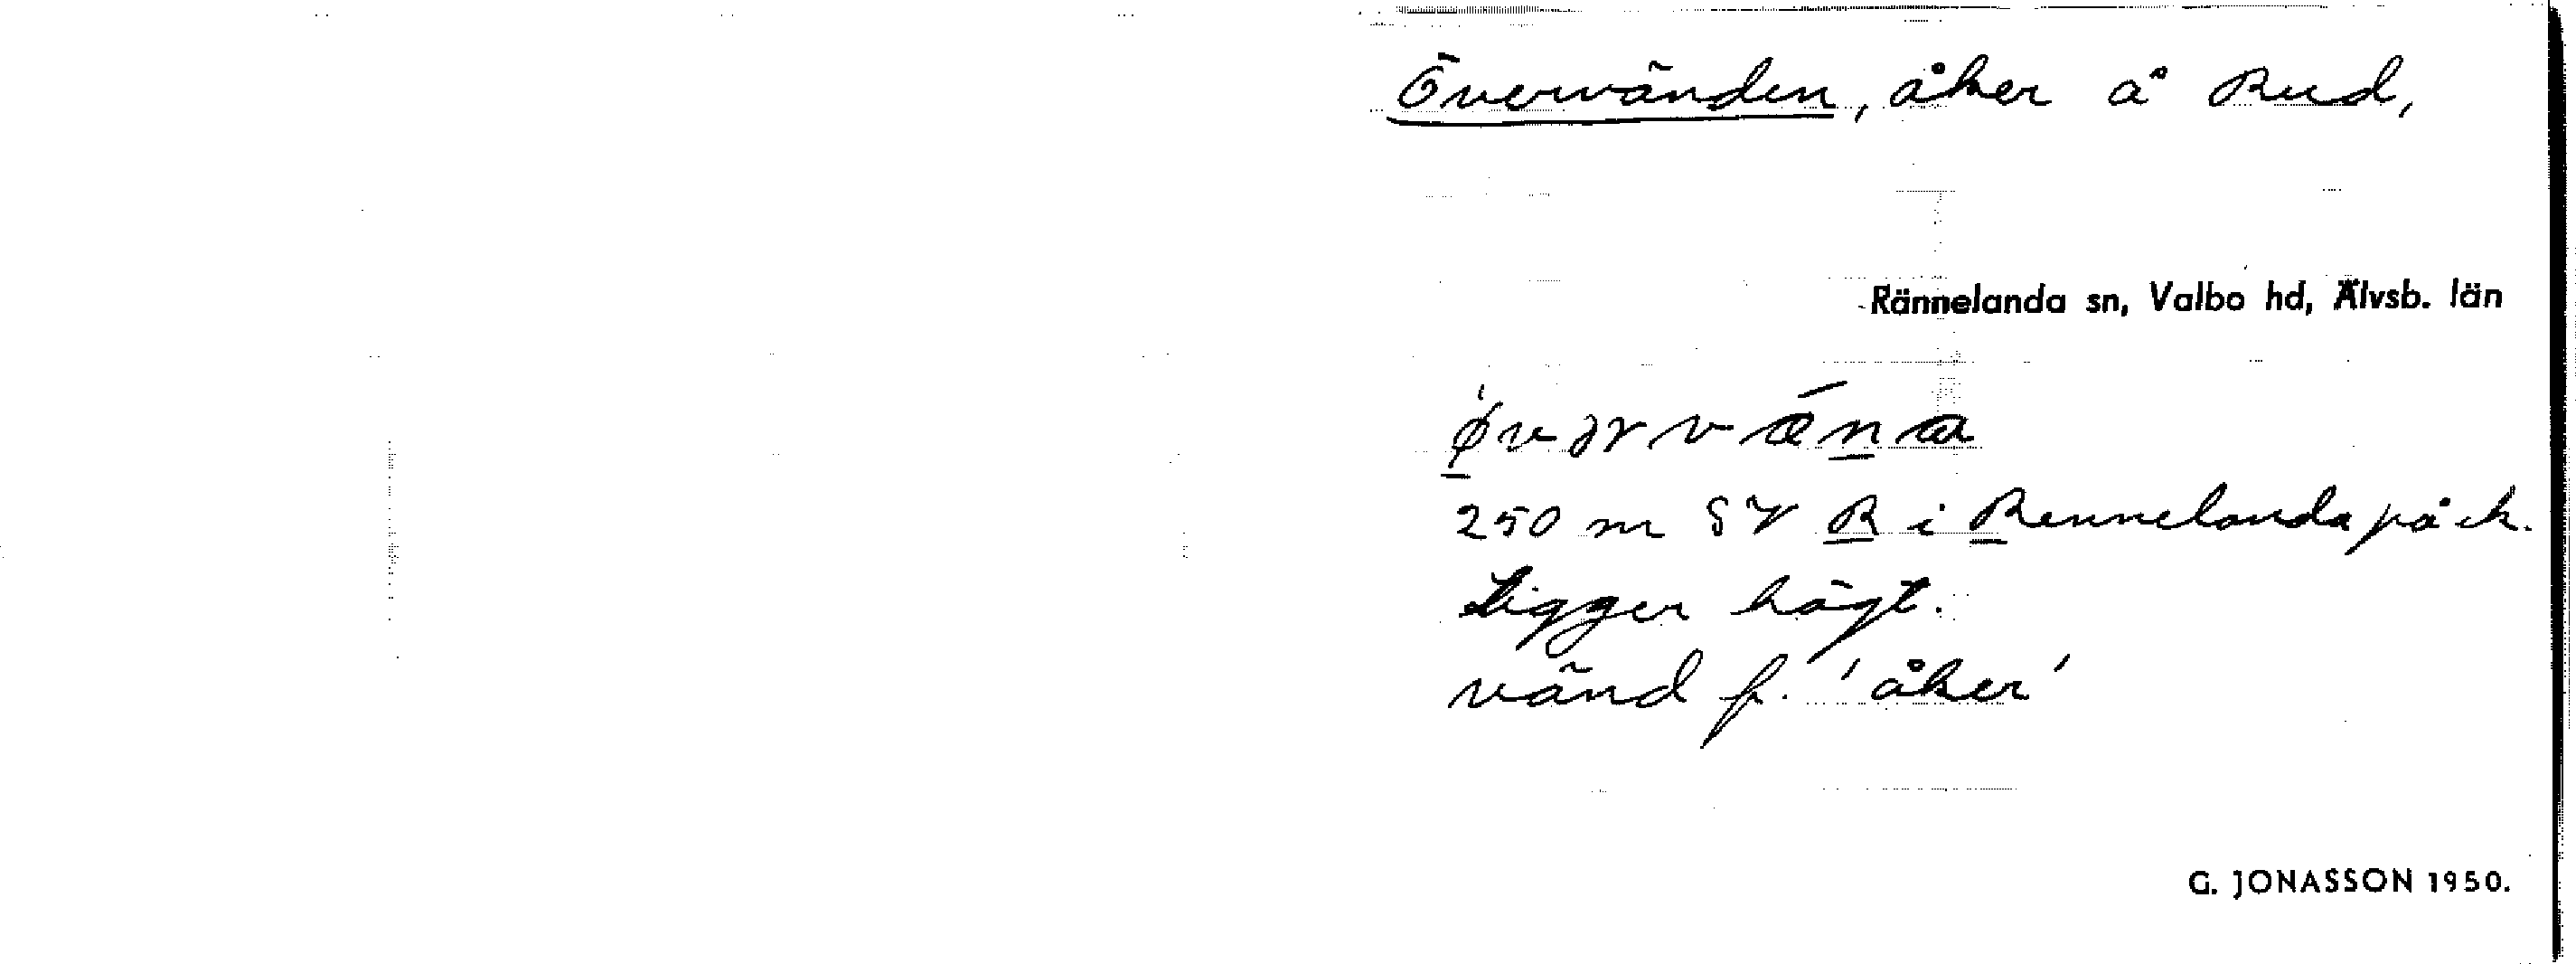 Övervänden, åker å Rud,
Rännelanda sn, Valbo hd, Älvsb. län
250 m SV R i Rennelanda på ek.
Ligger högt.
vänd f. 'åker'
G. JONASSON 1950.